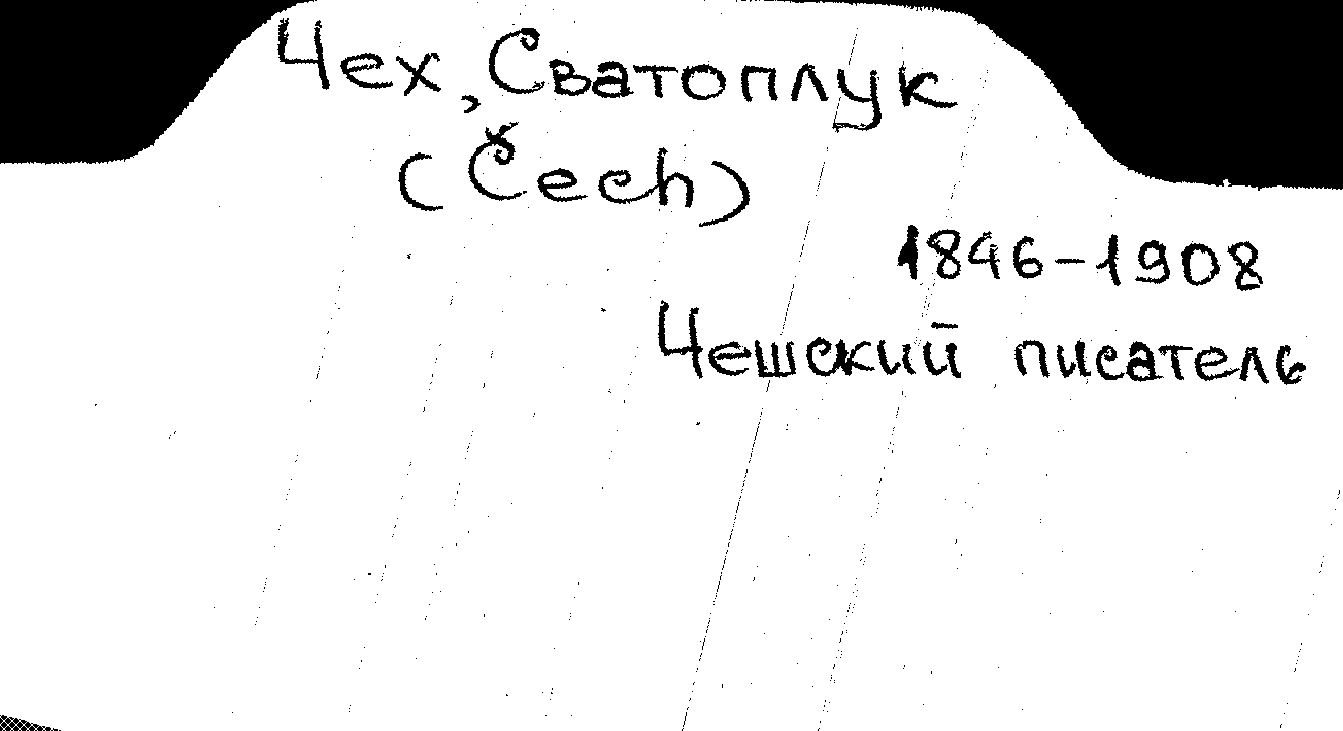 Чех, Сватоплук
(Čech)
1846-1908
Чешский писатель